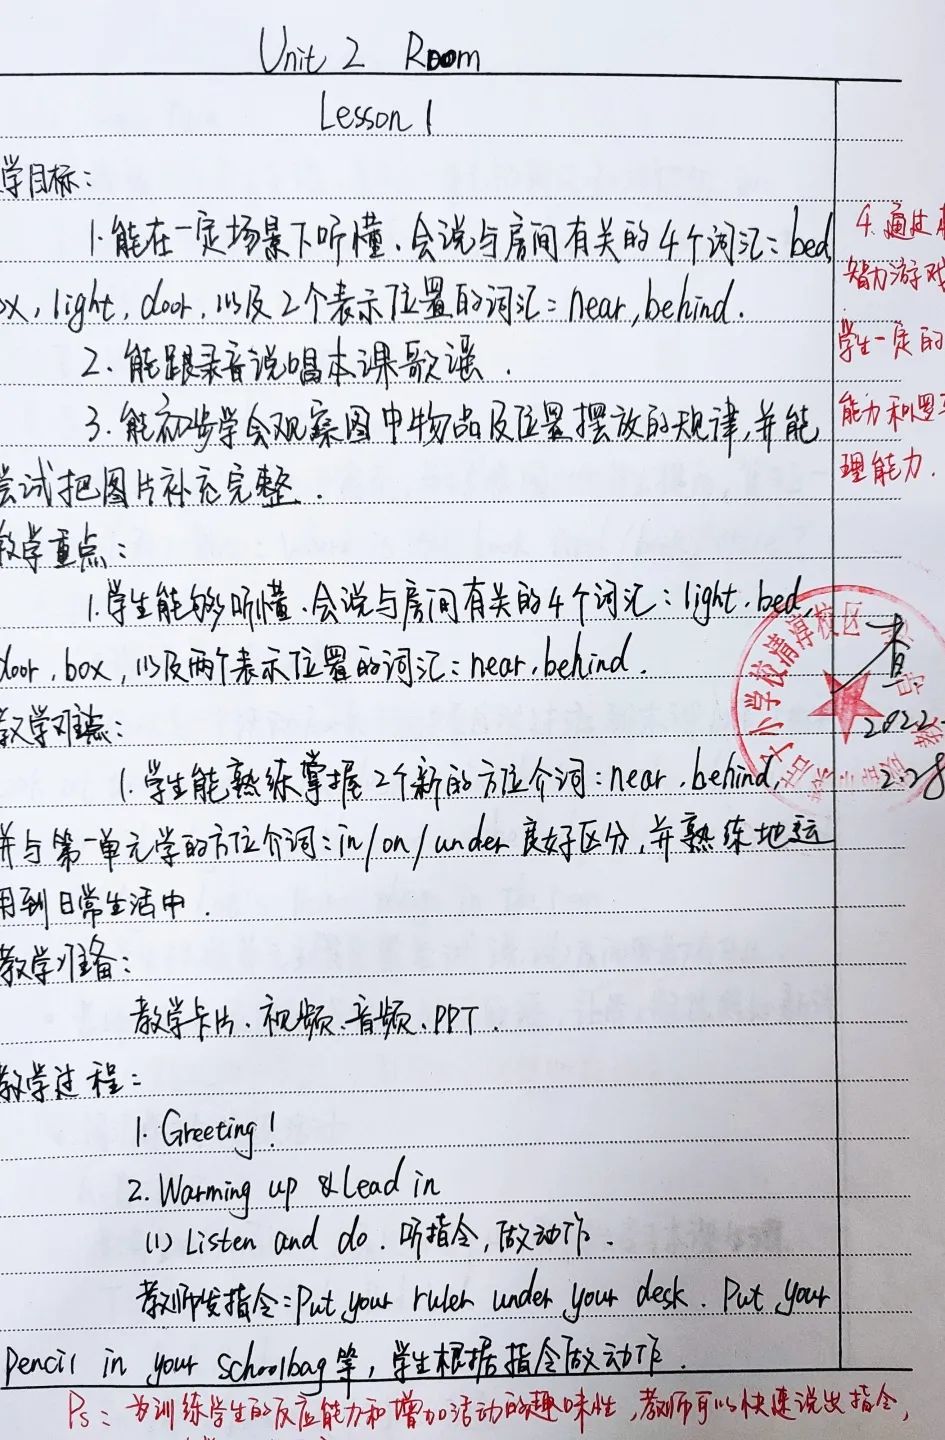 Unit 2 Room
Lesson 1
学目标：
1. 能在一定场景下听懂、会说与房间有关的4个词汇：bed,
ox, light, door, 以及2个表示位置的词汇：near, behind.
2. 能跟录音说唱本课歌谣.
3. 能初步学会观察图中物品及位置摆放的规律,并能
尝试把图片补充完整.
教学重点：
1. 学生能够听懂、会说与房间有关的4个词汇：light, bed,
door, box, 以及两个表示位置的词汇：near, behind.
教学难点：
1. 学生能熟练掌握2个新的方位介词：near, behind,
并与第一单元学的方位介词：in/on/under 良好区分,并熟练地运
用到日常生活中.
教学准备：
教学卡片、视频、音频、PPT.
教学过程：
1. Greeting!
2. Warming up & Lead in
(1) Listen and do. 听指令,做动作.
教师发指令：Put your ruler under your desk. Put your
pencil in your schoolbag等,学生根据指令做动作.
Ps：为训练学生的反应能力和增加活动的趣味性,教师可以快速说出指令,
4. 通过
智力游戏
学生一定的
能力和
理能力.
小学校清淳校区
2022.
2.28